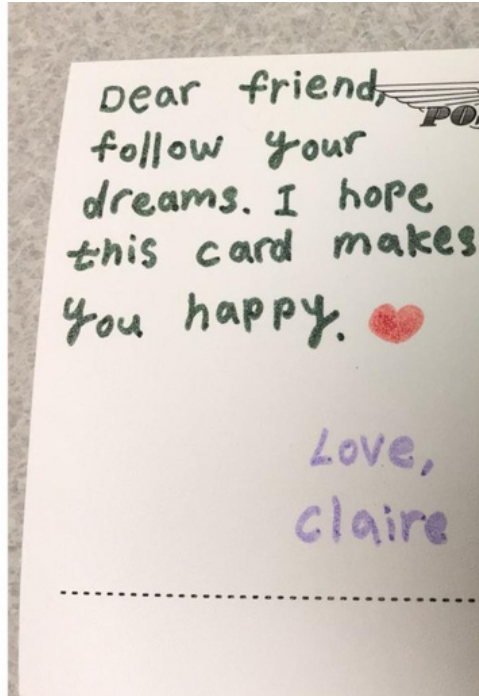 Dear friend,
follow your
dreams. I hope
this card makes
you happy.
Love,
Claire